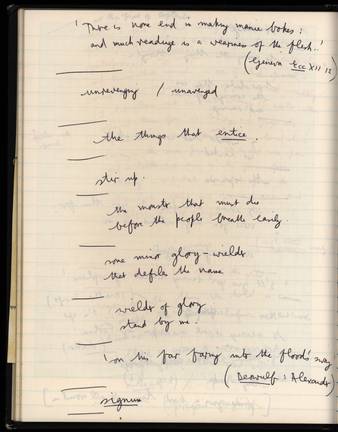 'There is none end in making manie bokes:
and much readinge is a wearines of the flesh.'
(Geneva Ecc XII 12)
unrevenging / unavenged
the things that entice.
stir up.
the monster that must die
before the people breathe easily.
some minor glory-wields
that defiles the name
wields of glory
stand by me!
'on his far faring into the flood's sway
(Beowulf: Alexander)
signum